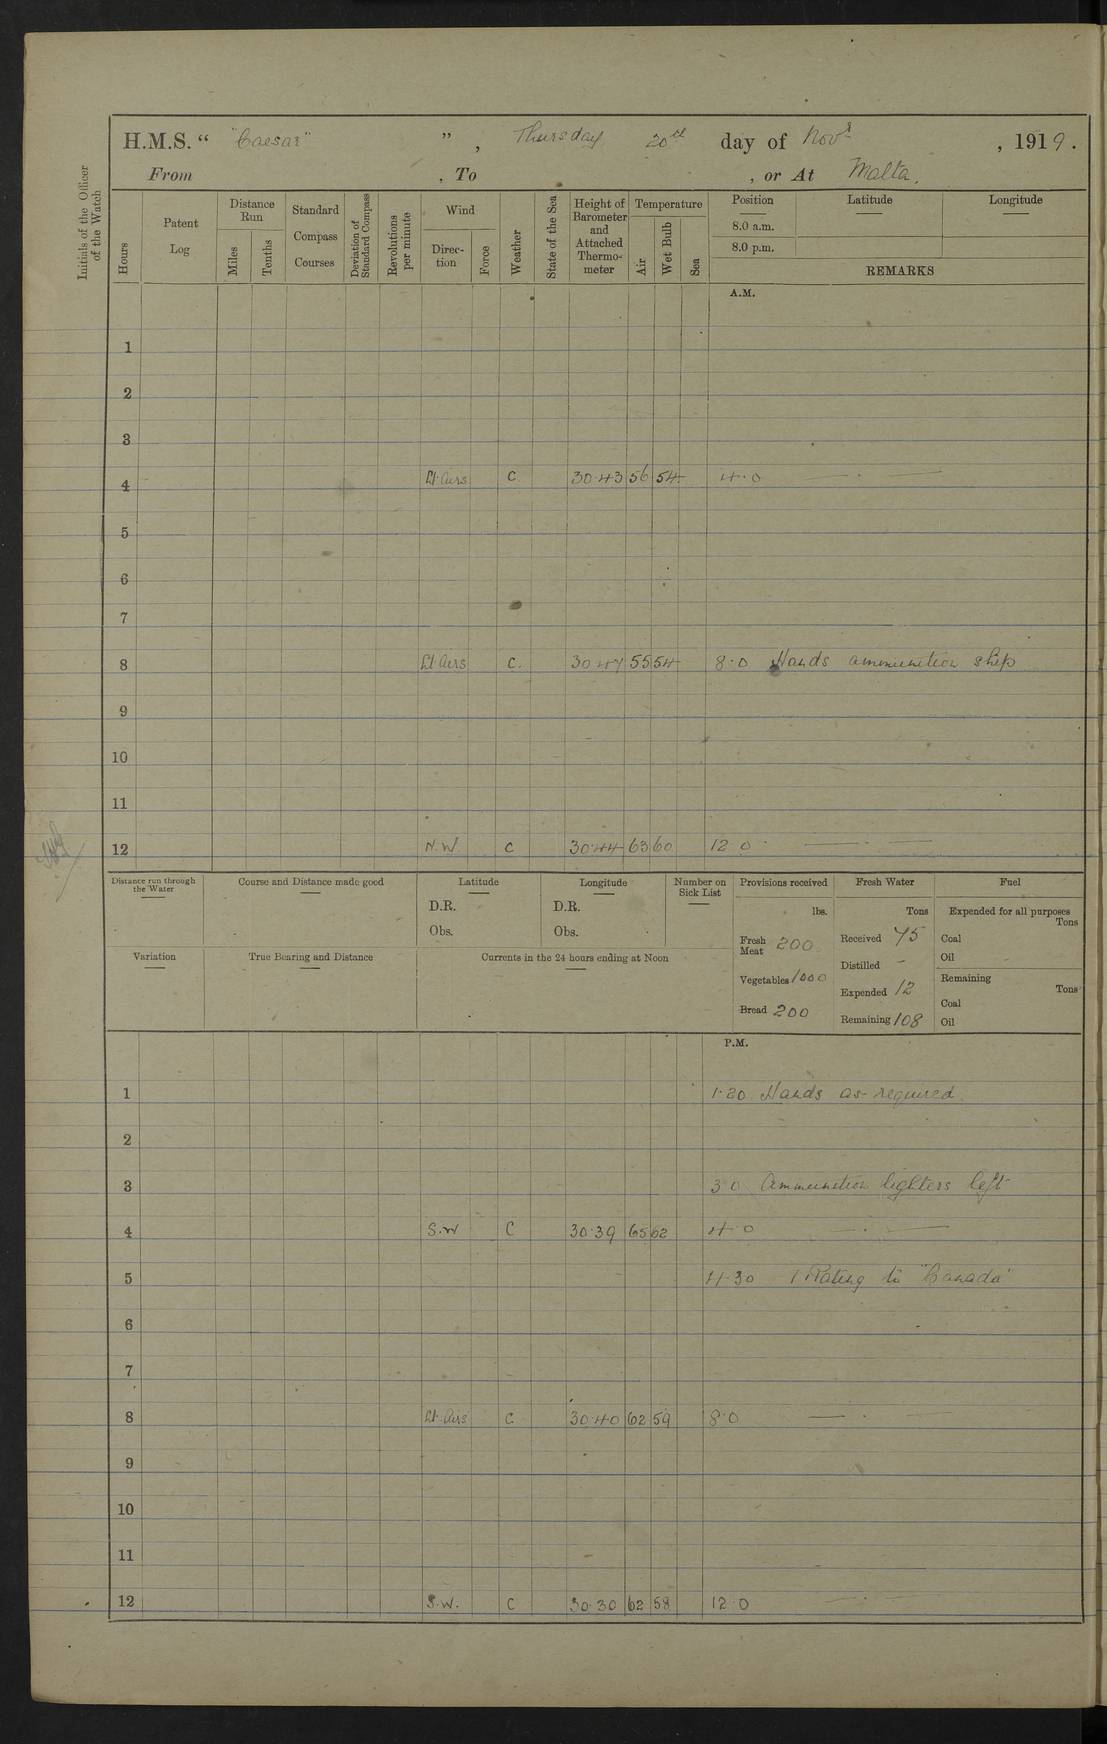 H.M.S. “ "Caesar" ” , Thursday 20th day of Novr , 1919.
From , To , or At Malta.
Initials of the Officer of the Watch
Hours
Patent Log
Distance Run
Miles
Tenths
Standard Compass Courses
Deviation of Standard Compass
Revolutions per minute
Wind
Direc-tion
Force
Weather
State of the Sea
Height of Barometer and Attached Thermo-meter
Temperature
Air
Wet Bulb
Sea
Position Latitude Longitude
8.0 a.m.
8.0 p.m.
REMARKS
A.M.
1
2
3
4 Lt. Airs C 30.43 56 54 4.0 — . —
5
6
7
8 Lt Airs C. 30 47 55 54 8.0 Hands ammunition ship
9
10
11
12 N.W. C 30.44 63 60 12 0 — . —
Distance run through the Water
Course and Distance made good
Latitude
D.R.
Obs.
Longitude
D.R.
Obs.
Number on Sick List
Provisions received
lbs.
Fresh Meat 200
Vegetables 1000
Bread 200
Fresh Water
Tons
Received 75
Distilled -
Expended 12
Remaining 108
Fuel
Expended for all purposes
Tons
Coal
Oil
Remaining
Tons
Coal
Oil
Variation
True Bearing and Distance
Currents in the 24 hours ending at Noon
P.M.
1 1.20 Hands as required.
2
3 3 0 Ammunition lighters left
4 S.W C 30.39 65 62 4 0 — . —
5 4.30 1 Rating to "Canada"
6
7
8 Lt. Airs C 30.40 62 59 8.0 — . —
9
10
11
12 S.W. C 30.30 62 58 12 0 — . —